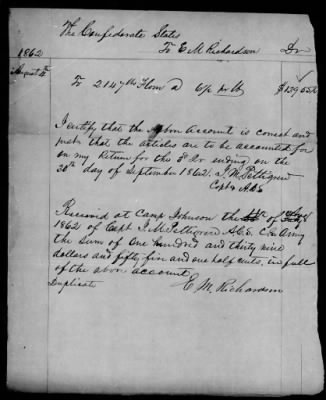 The Confederate States
1862 To E M Richardson Dr
August 4 To 2147 lbs Flour a 6½ pr lb $139.55½
I certify that the above account is correct and
just; that the articles are to be accounted for
on my Return for the 3d Qr ending on the
30th day of September 1862. J. M. Pettigrew
Capt & ACS
Received at Camp Johnson the 4th of August
1862 of Capt J. M. Pettigrew ACS. C.S. Army
the sum of one hundred and thirty nine
dollars and fifty five and one half cents, in full
of the above account
Duplicate E. M. Richardson